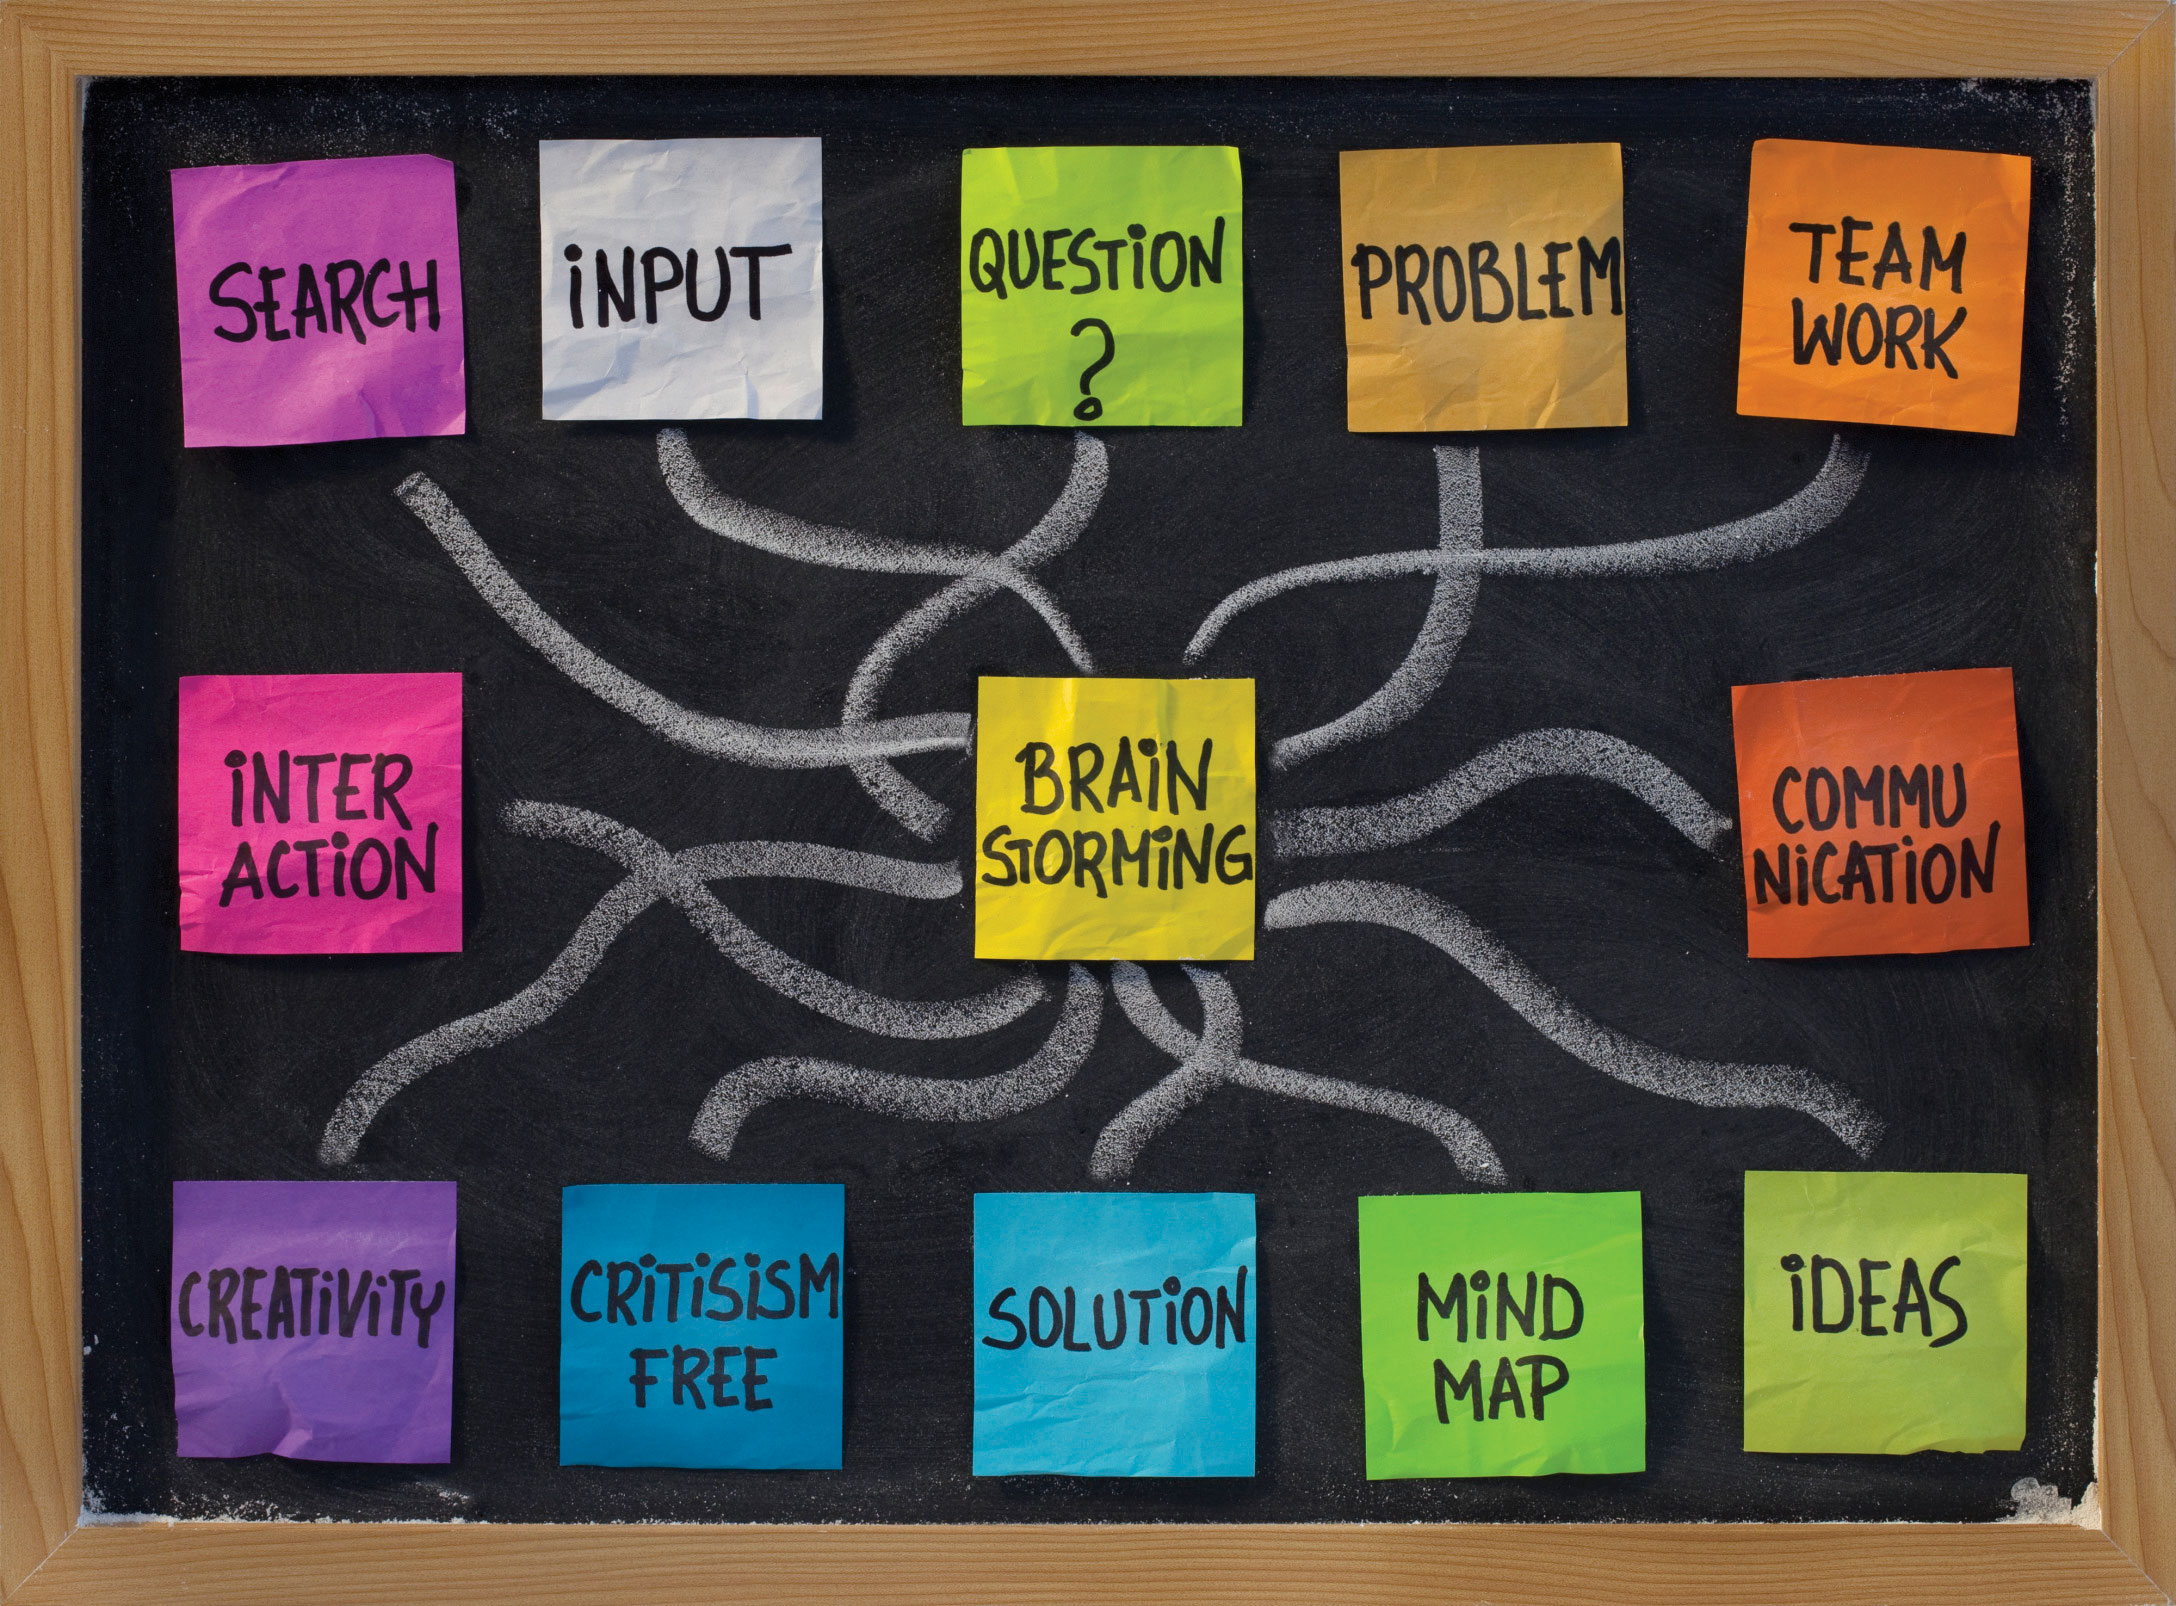 SEARCH
iNPUT
QUESTiON
?
PROBLEM
TEAM
WORK
iNTER
ACTiON
BRAiN
STORMiNG
COMMU
NiCATiON
CREATiViTY
CRiTiSiSM
FREE
SOLUTiON
MiND
MAP
iDEAS